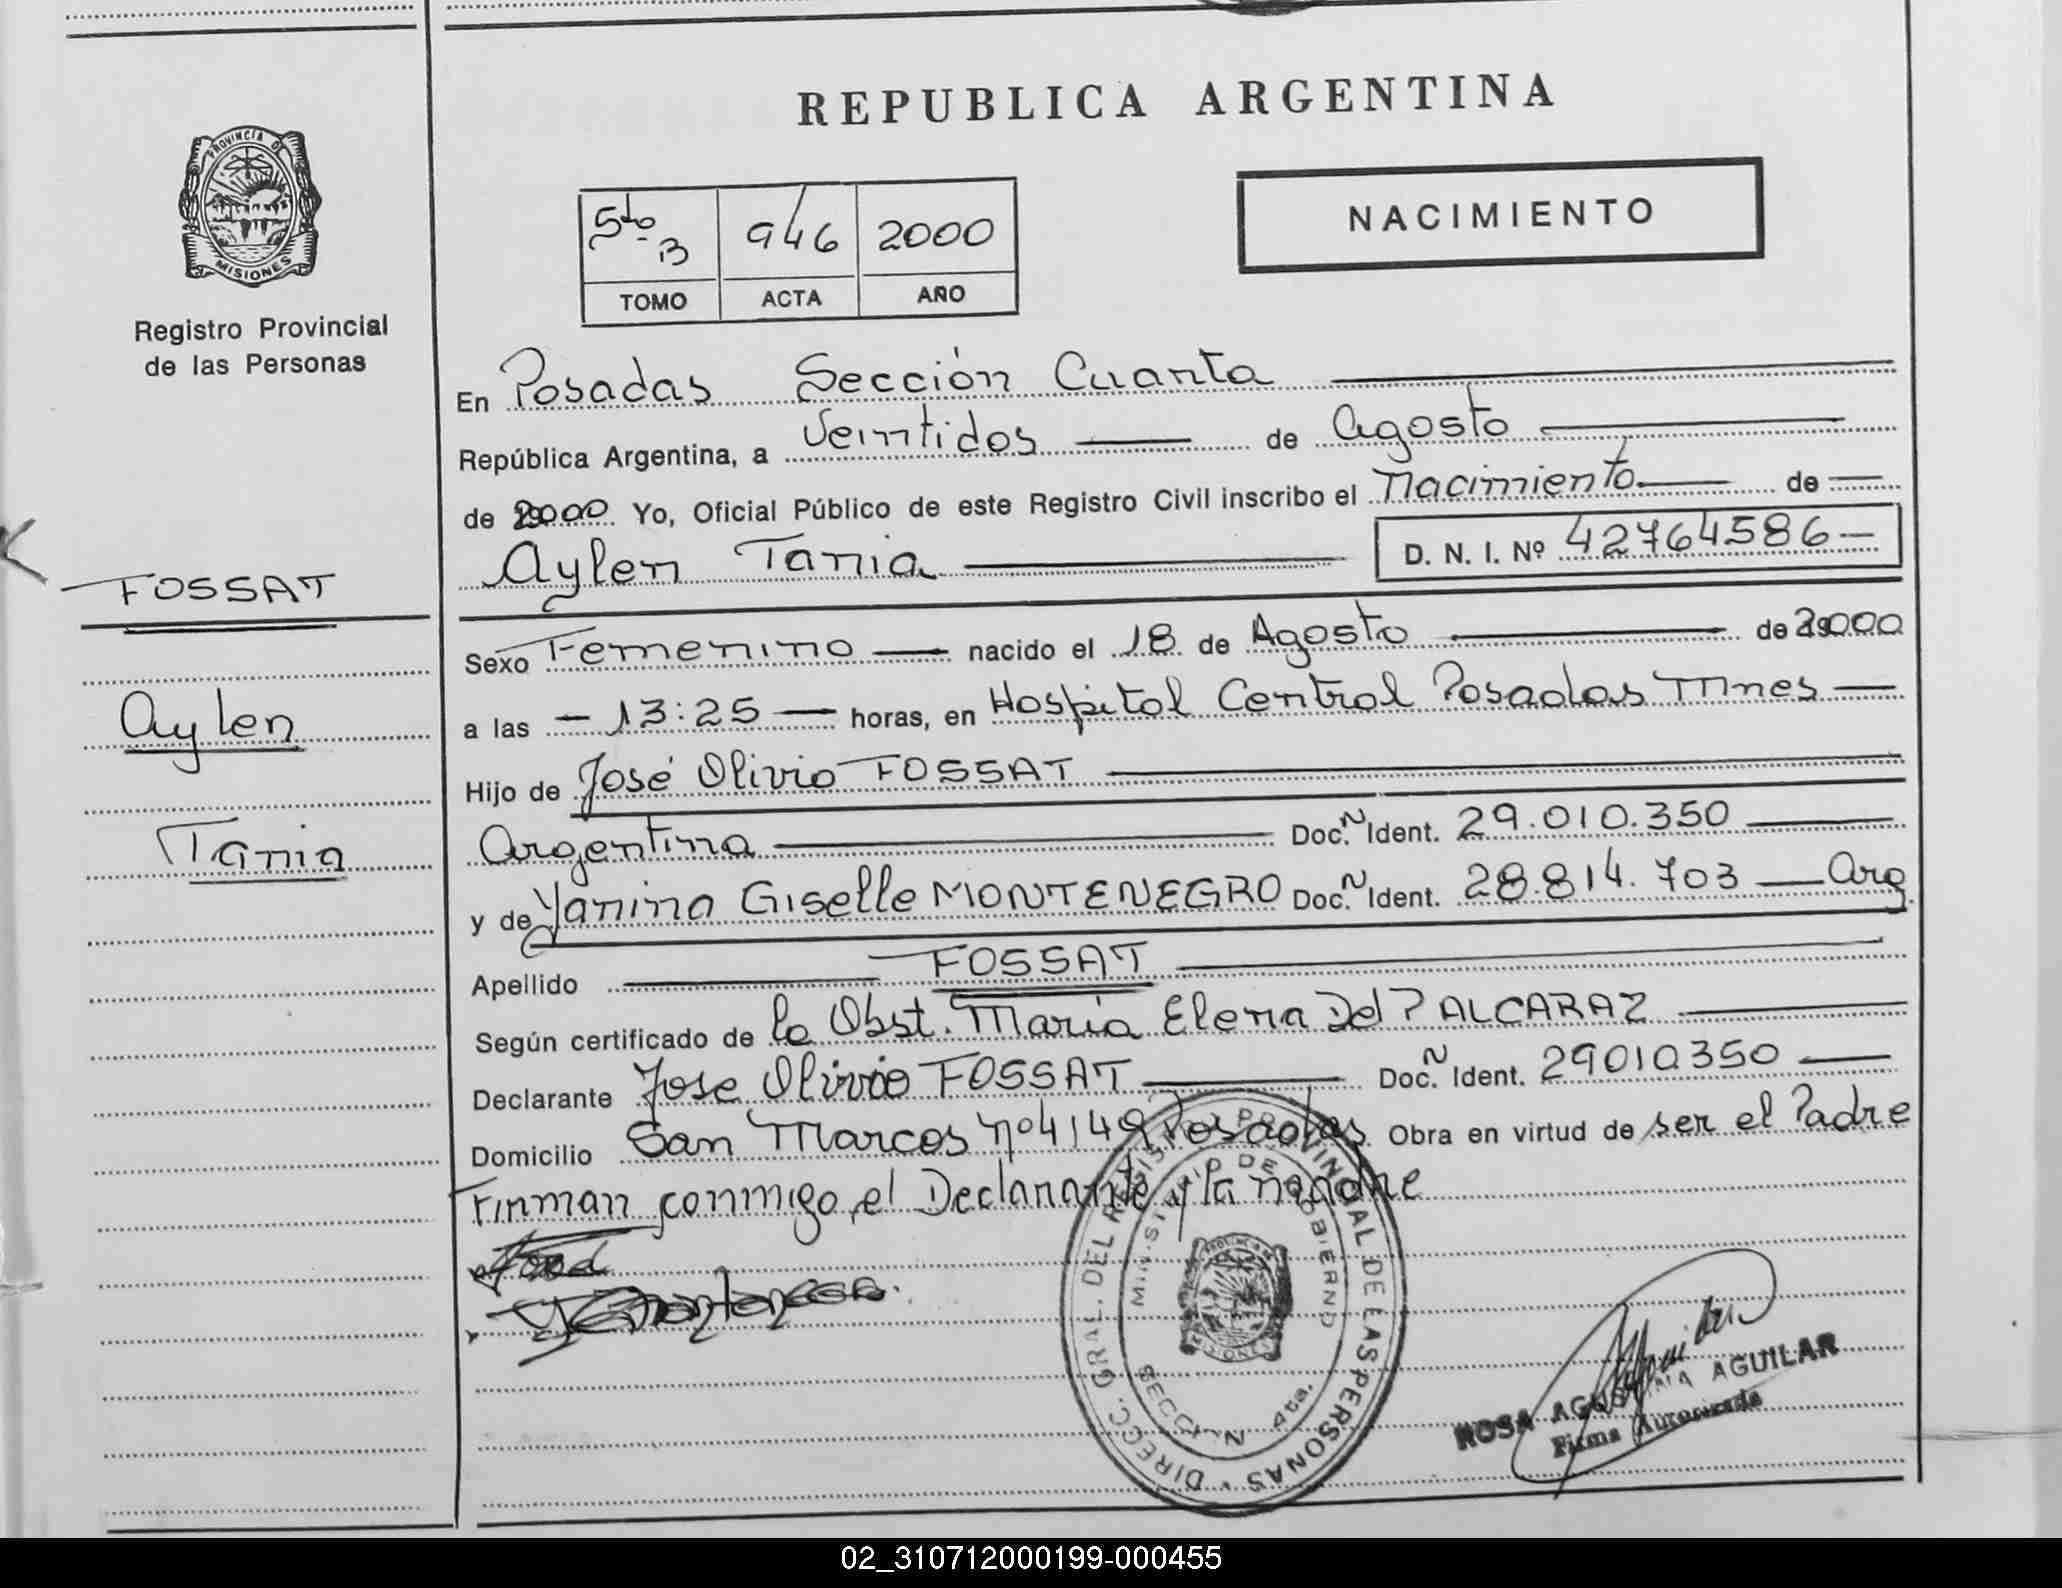 REPUBLICA ARGENTINA
PROVINCIA D
MISIONES
Registro Provincial
de las Personas
5to B 946 2000
TOMO ACTA AÑO
NACIMIENTO
En Posadas Sección Cuarta
República Argentina, a Veintidos de Agosto
de 2000 Yo, Oficial Público de este Registro Civil inscribo el Nacimiento de
Aylen Tania D. N. I. Nº 42764586
FOSSAT
Aylen
Tania
Sexo Femenino nacido el 18 de Agosto de 2000
a las 13:25 horas, en Hospital Central Posadas Mnes
Hijo de José Olivio FOSSAT
Argentina Doc. N Ident. 29.010.350
y de Yanina Giselle MONTENEGRO Doc. N Ident. 28.814.703 Arg
Apellido FOSSAT
Según certificado de la Obst. María Elena Del P ALCARAZ
Declarante Jose Olivio FOSSAT Doc. N Ident. 29010350
Domicilio San Marcos nº 4149 Posadas Obra en virtud de ser el Padre
Firman conmigo, el Declarante y la madre
DIRECC. GRAL. DEL REGISTRO PROVINCIAL DE LAS PERSONAS
MINISTERIO DE GOBIERNO
SECCION 4ta.
ROSA AGUSTINA AGUILAR
Firma Autorizada
02_310712000199-000455